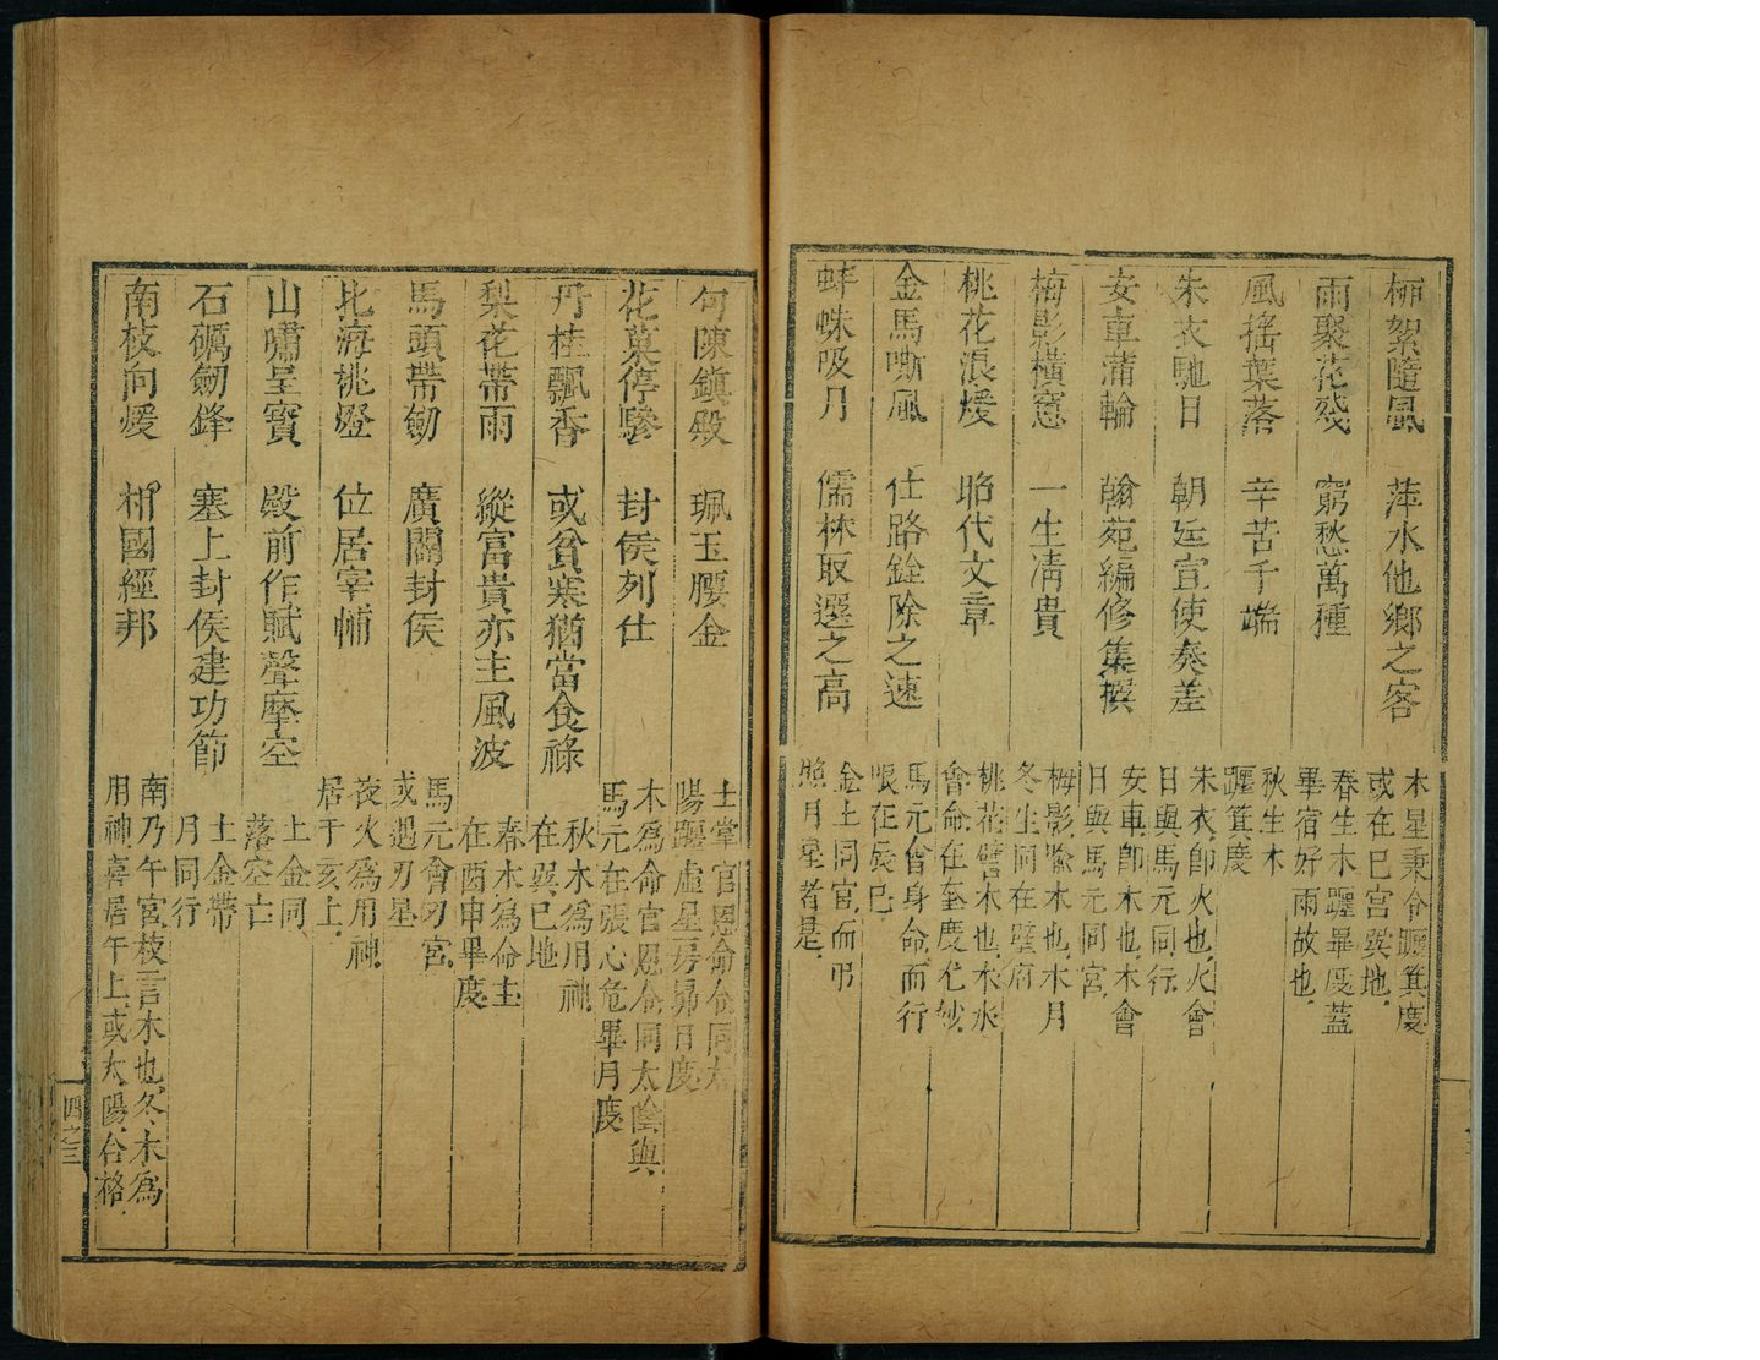 柳絮隨風　萍水他鄉之客　木星秉令躔箕度
或在巳宮巽地
雨聚花殘　窮愁萬種　春生木躔畢度蓋
畢宿好雨故也
風搖葉落　辛苦千端　秋生木
躔箕度
朱衣馳日　朝廷宣使奏差　朱衣即火也火會
日與馬元同行
安車蒲輪　翰苑編修集撰　安車即木也木會
日與馬元同宮
梅影橫窓　一生清貴　梅影喻木也木月
冬生同在壁府
桃花浪煖　昭代文章　桃花譬木也木水
會命在奎度尤妙
金馬嘶風　仕路銓除之速　馬元會身命而行
限在辰巳
蚌蛛吸月　儒林取選之高　金土同宮而弔
照月孛者是
句陳鎮殿　珮玉腰金　土掌官恩命令同太
陽躔虛星房昴日度
花菓停驂　封侯列仕　木為命官恩令同太陰與
馬元在張心危畢月度
丹桂飄香　或貧寒猶當食祿　秋木為用神
在巽巳地
梨花帶雨　縱富貴亦主風波　春木為命主
在酉申畢度
馬頭帶劒　廣闢封侯　馬元會刃宮
或遇刃星
北海挑燈　位居宰輔　夜火為用神
居于亥上
山嘯呈寳　殿前作賦聲摩空　土金同
落空亡
石礪劒鋒　塞上封侯建功節　土金帶
月同行
南枝向煖　相國經邦　南乃午宮枝言木也冬木為
用神喜居午上或太陽合格
四之三